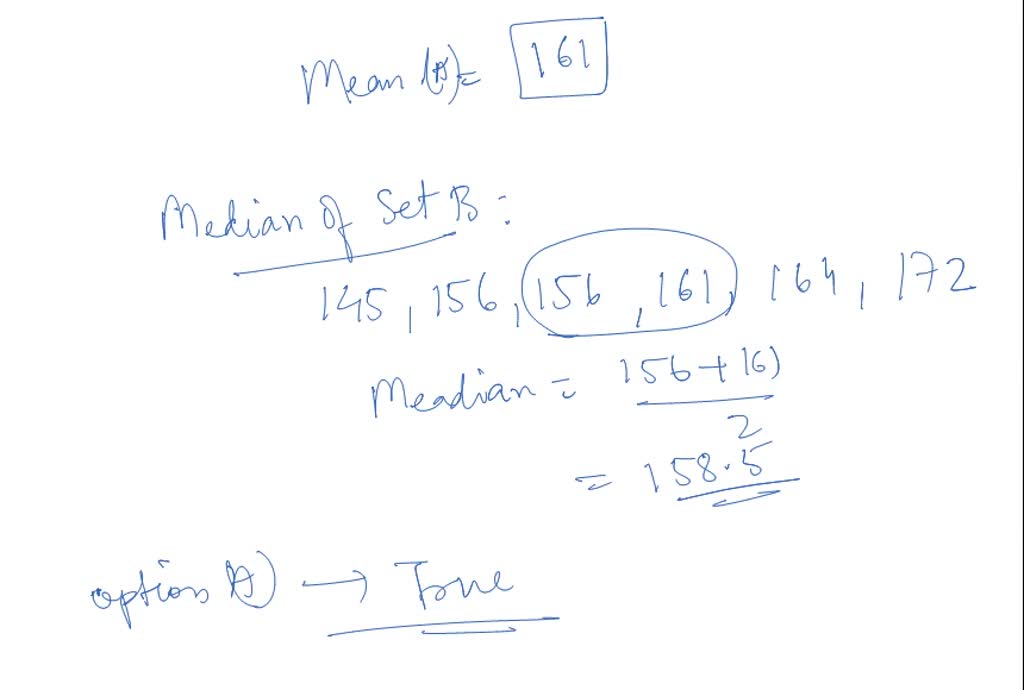 Mean (A) = 161
Median of Set B :
145 , 156 , 156 , 161 , 164 , 172
Meadian = 156 + 161
2
= 158.5
option A) → True